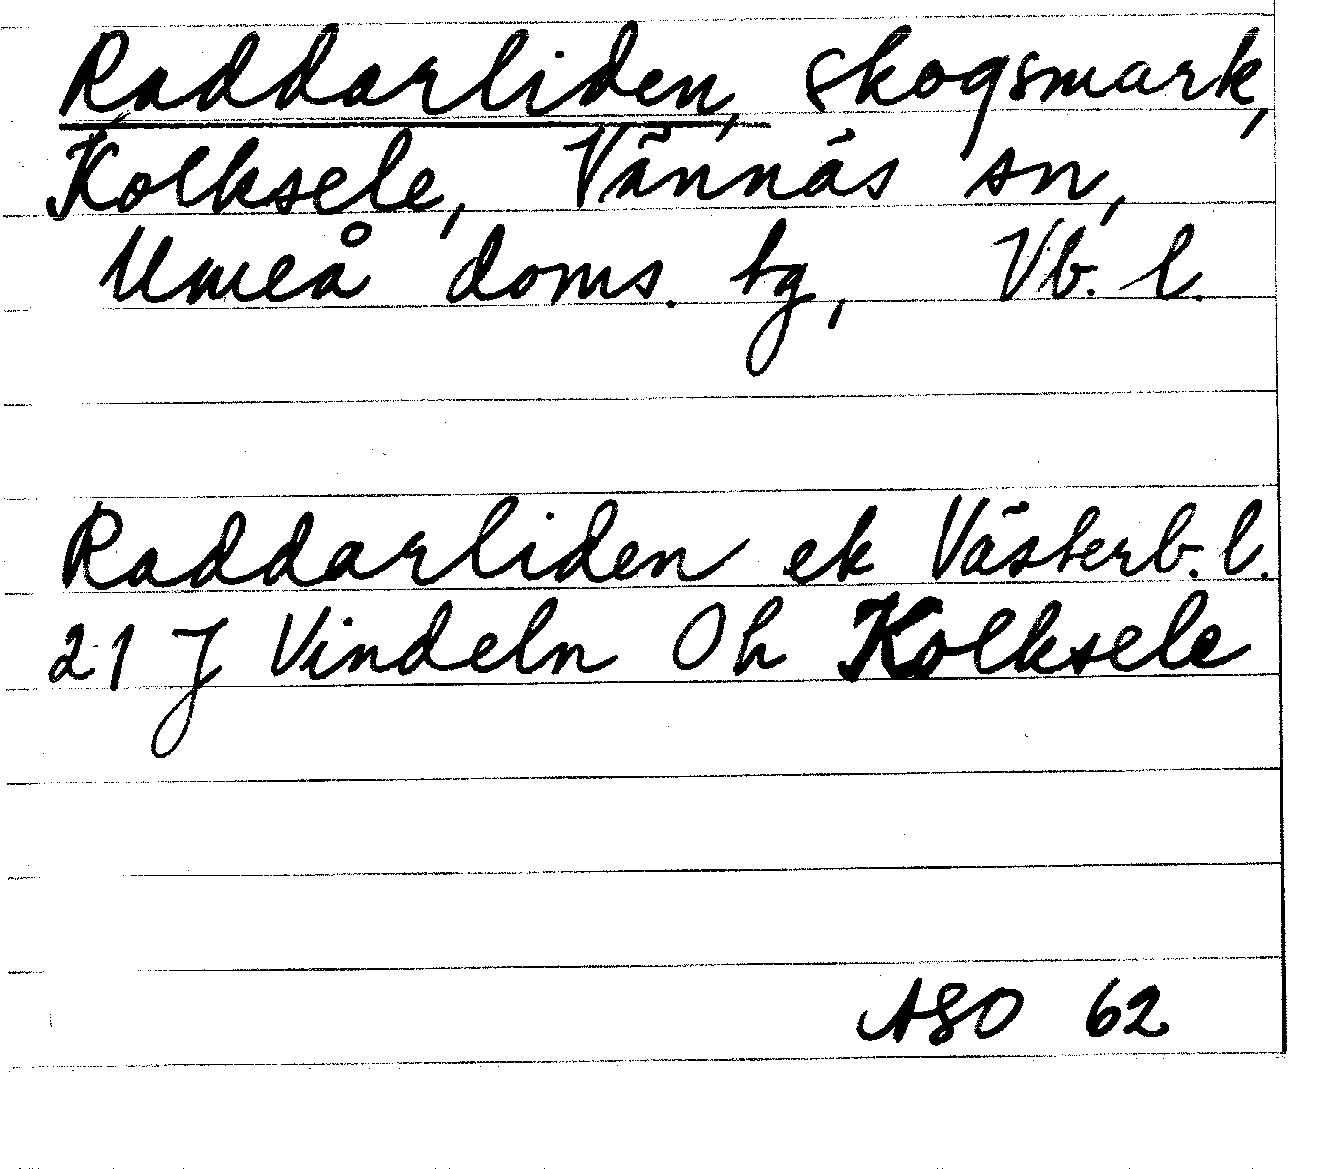 Raddarliden, skogsmark,
Kolksele, Vännäs sn,
Umeå doms. tg, Vb. l.
Raddarliden ek Västerb. l.
21 J Vindeln Oh Kolksele
ASO 62